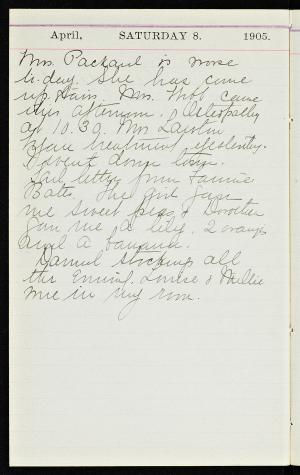 April, SATURDAY 8. 1905.
Mrs. Packard is worse
to-day. She has come
up stairs. Mrs. came
this afternoon. Osteopathy
at 10.30. Mrs
treatment yesterday.
I went down town.
letter from Fannie
Bates. The girl gave
me sweet peas & Dorothea
gave me a lily. 2 oranges
and a banana.
Darned stockings all
the Evening. Louise & Mellie
were in my room.